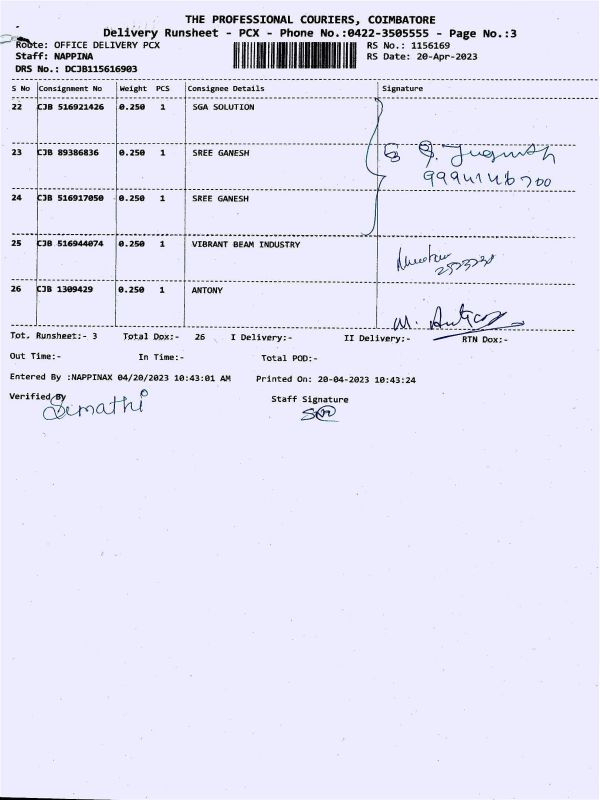 THE PROFESSIONAL COURIERS, COIMBATORE
Delivery Runsheet - PCX - Phone No.:0422-3505555 - Page No.:3
Route: OFFICE DELIVERY PCX
RS No.: 1156169
Staff: NAPPINA
RS Date: 20-Apr-2023
DRS No.: DCJB115616903
S No Consignment No Weight PCS Consignee Details Signature
22 CJB 516921426 0.250 1 SGA SOLUTION
23 CJB 89386836 0.250 1 SREE GANESH
24 CJB 516917050 0.250 1 SREE GANESH
25 CJB 516944074 0.250 1 VIBRANT BEAM INDUSTRY
26 CJB 1309429 0.250 1 ANTONY
Tot. Runsheet:- 3 Total Dox:- 26 I Delivery:- II Delivery:- RTN Dox:-
Out Time:- In Time:- Total POD:-
Entered By :NAPPINAX 04/20/2023 10:43:01 AM Printed On: 20-04-2023 10:43:24
Verified By Staff Signature